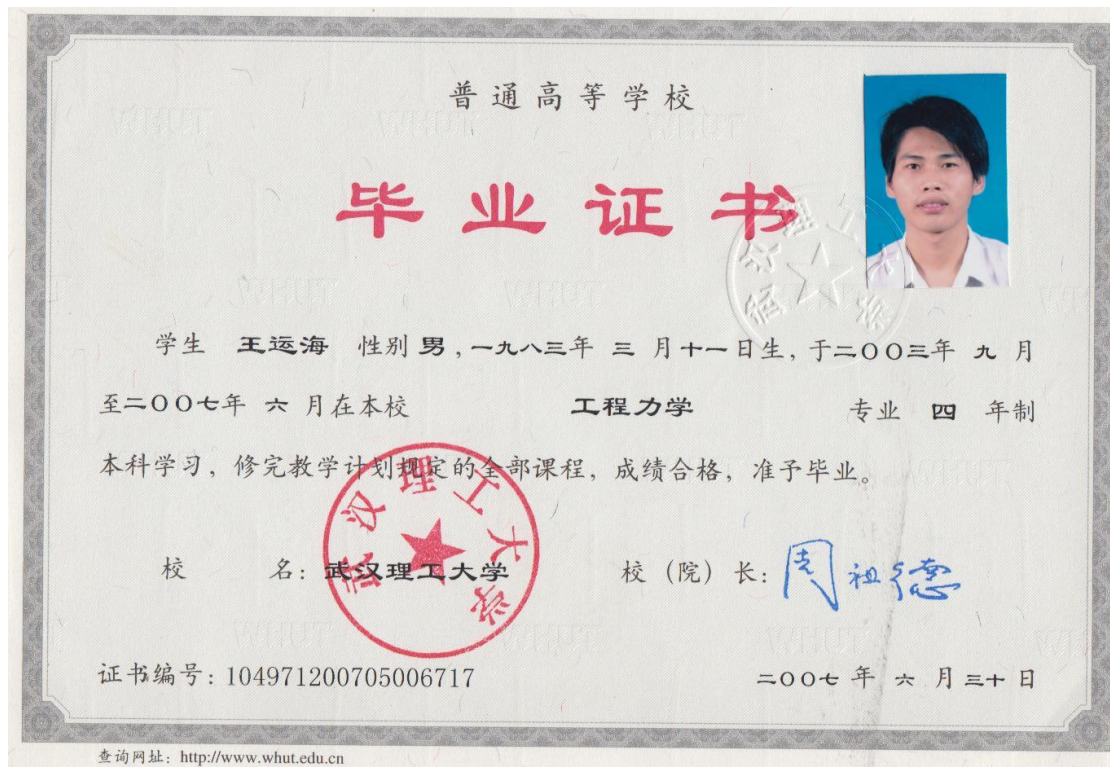 普通高等学校
毕业证书
学生 王运海 性别 男，一九八三年 三 月十一日生，于二〇〇三年 九 月
至二〇〇七年 六 月在本校 工程力学 专业 四 年制
本科学习，修完教学计划规定的全部课程，成绩合格，准予毕业。
校 名：武汉理工大学 校（院）长：周祖德
武汉理工大学
证书编号：104971200705006717 二〇〇七 年 六 月 三十 日
查询网址：http://www.whut.edu.cn